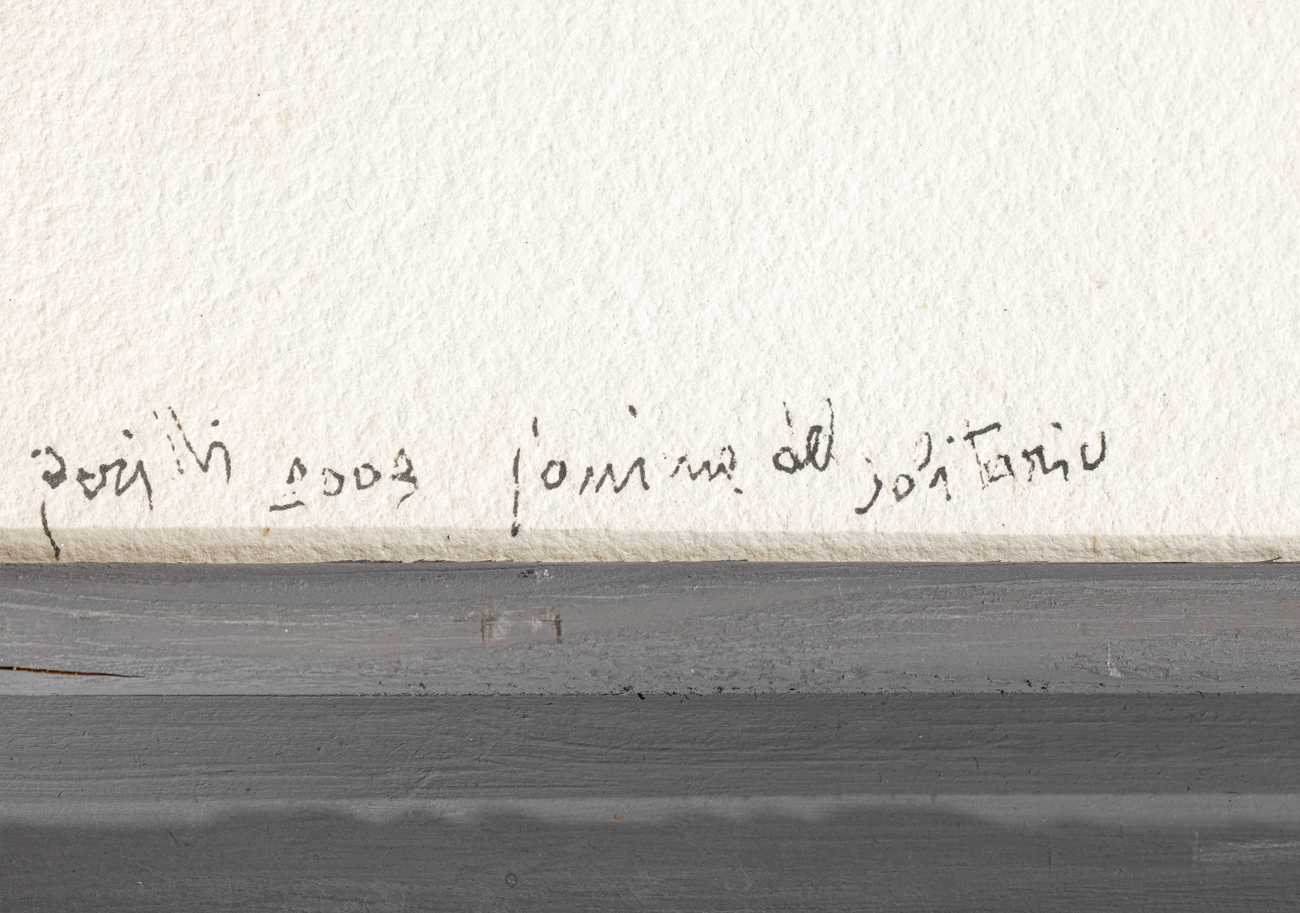 perilli 2003 l'anima del solitario